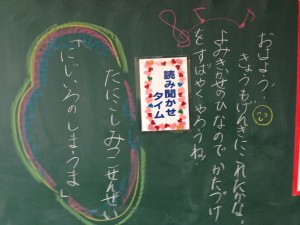 おはよう。
きょうもげんきにこれたかな。
よみきかせのひなので かたづけ
をすばやくやろうね
読み聞かせ
タイム
たにこしみつこせんせい
「にじいろのしまうま」